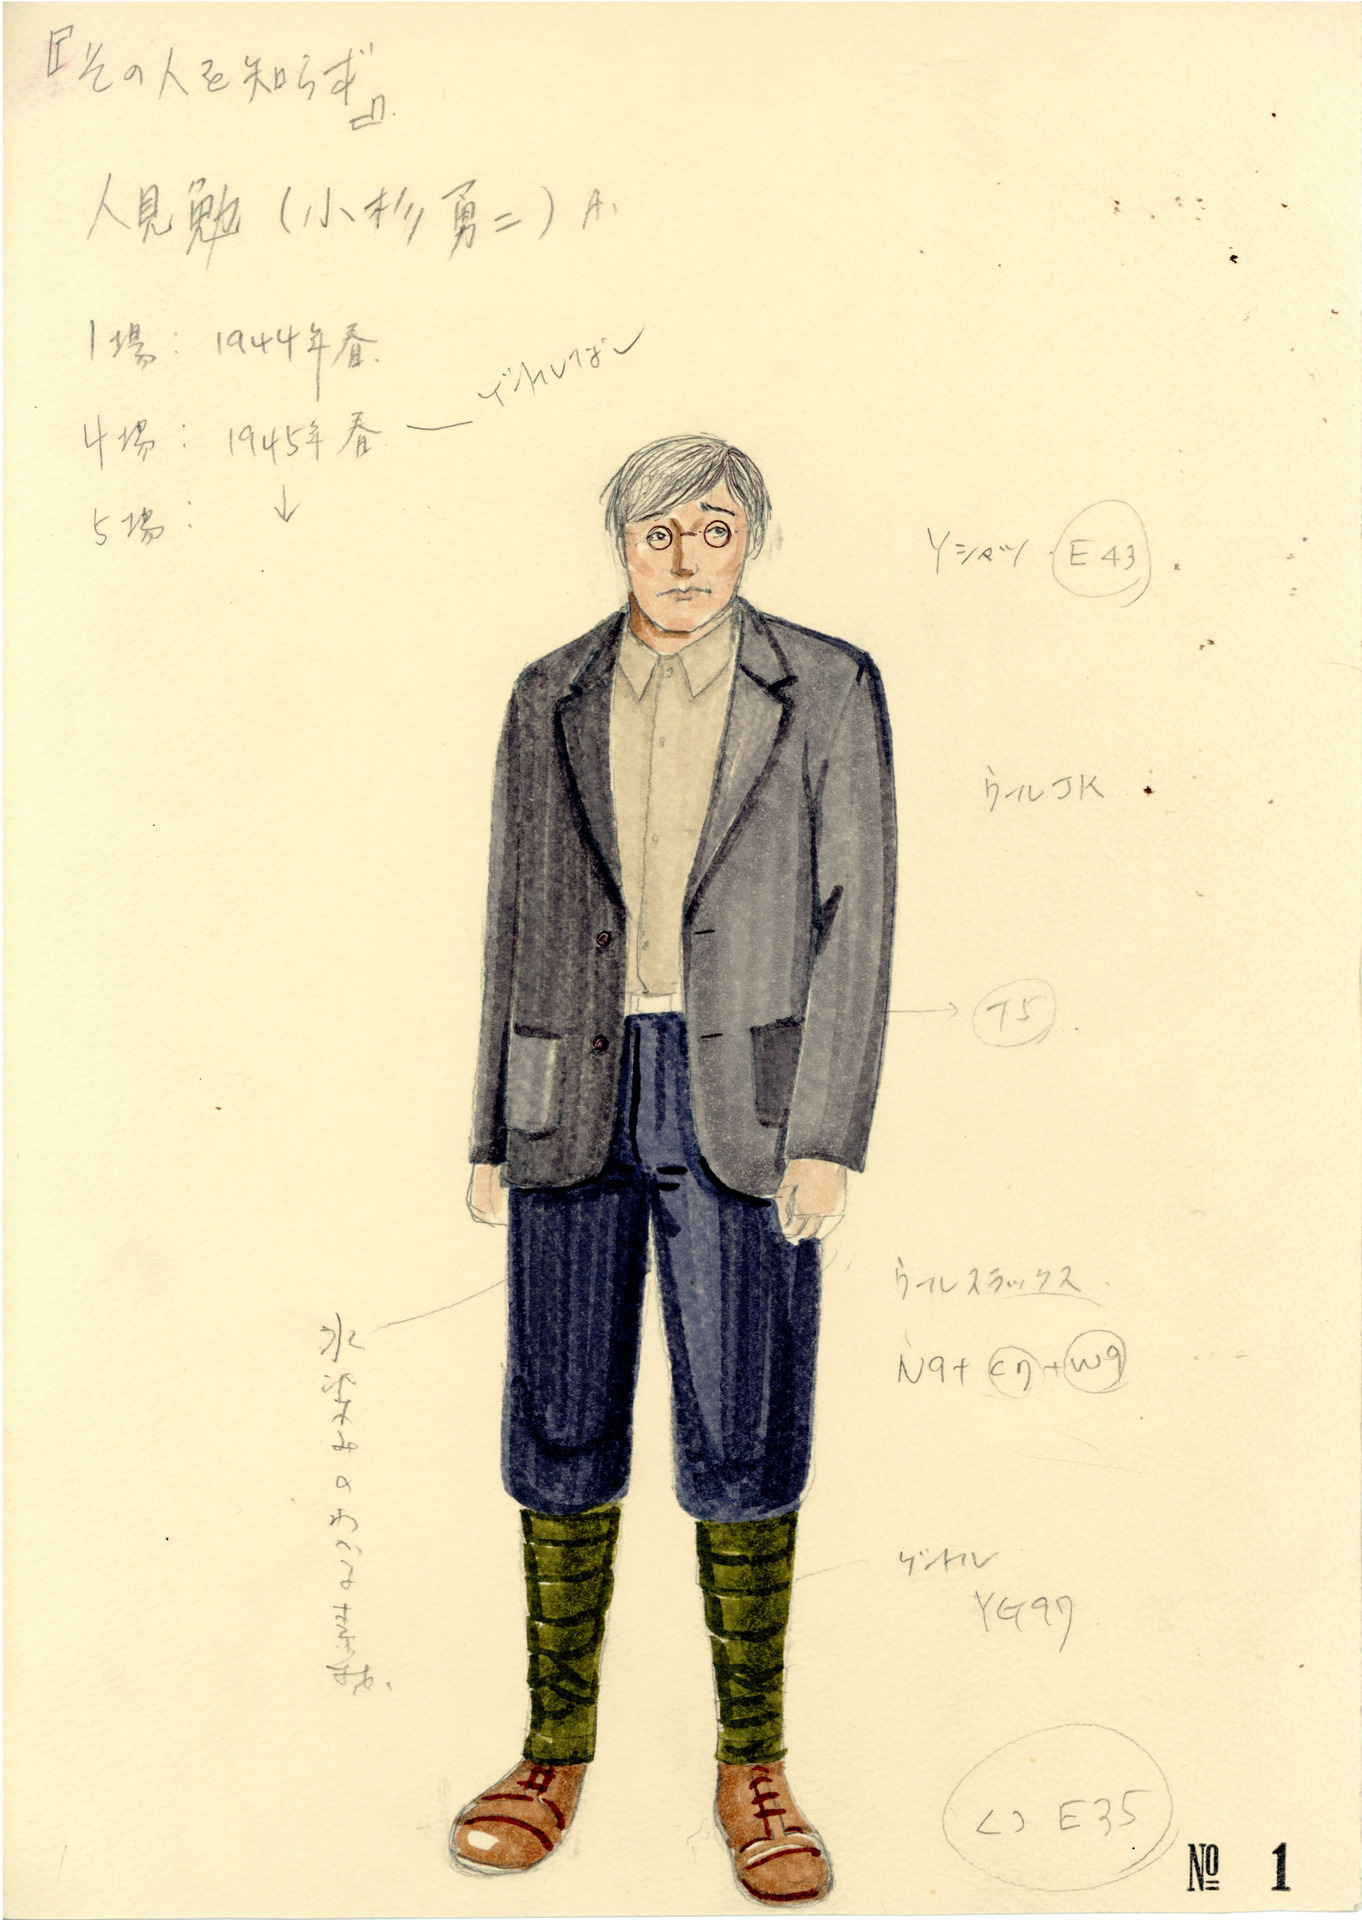 『その人を知らず』
人見勉(小杉勇二)A.
1場: 1944年春.
4場: 1945年春. — ゲートルはずし
5場: ↓
Yシャツ. E43
ウールJK
→ T5.
ウールスラックス.
N9+C7+W9
ゲートル
YG97
くつ E35
№ 1